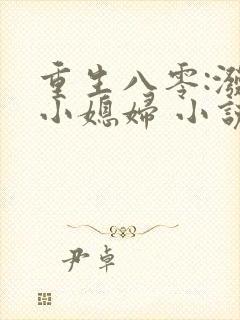 重生八零:潑
小媳婦 小說
尹卓